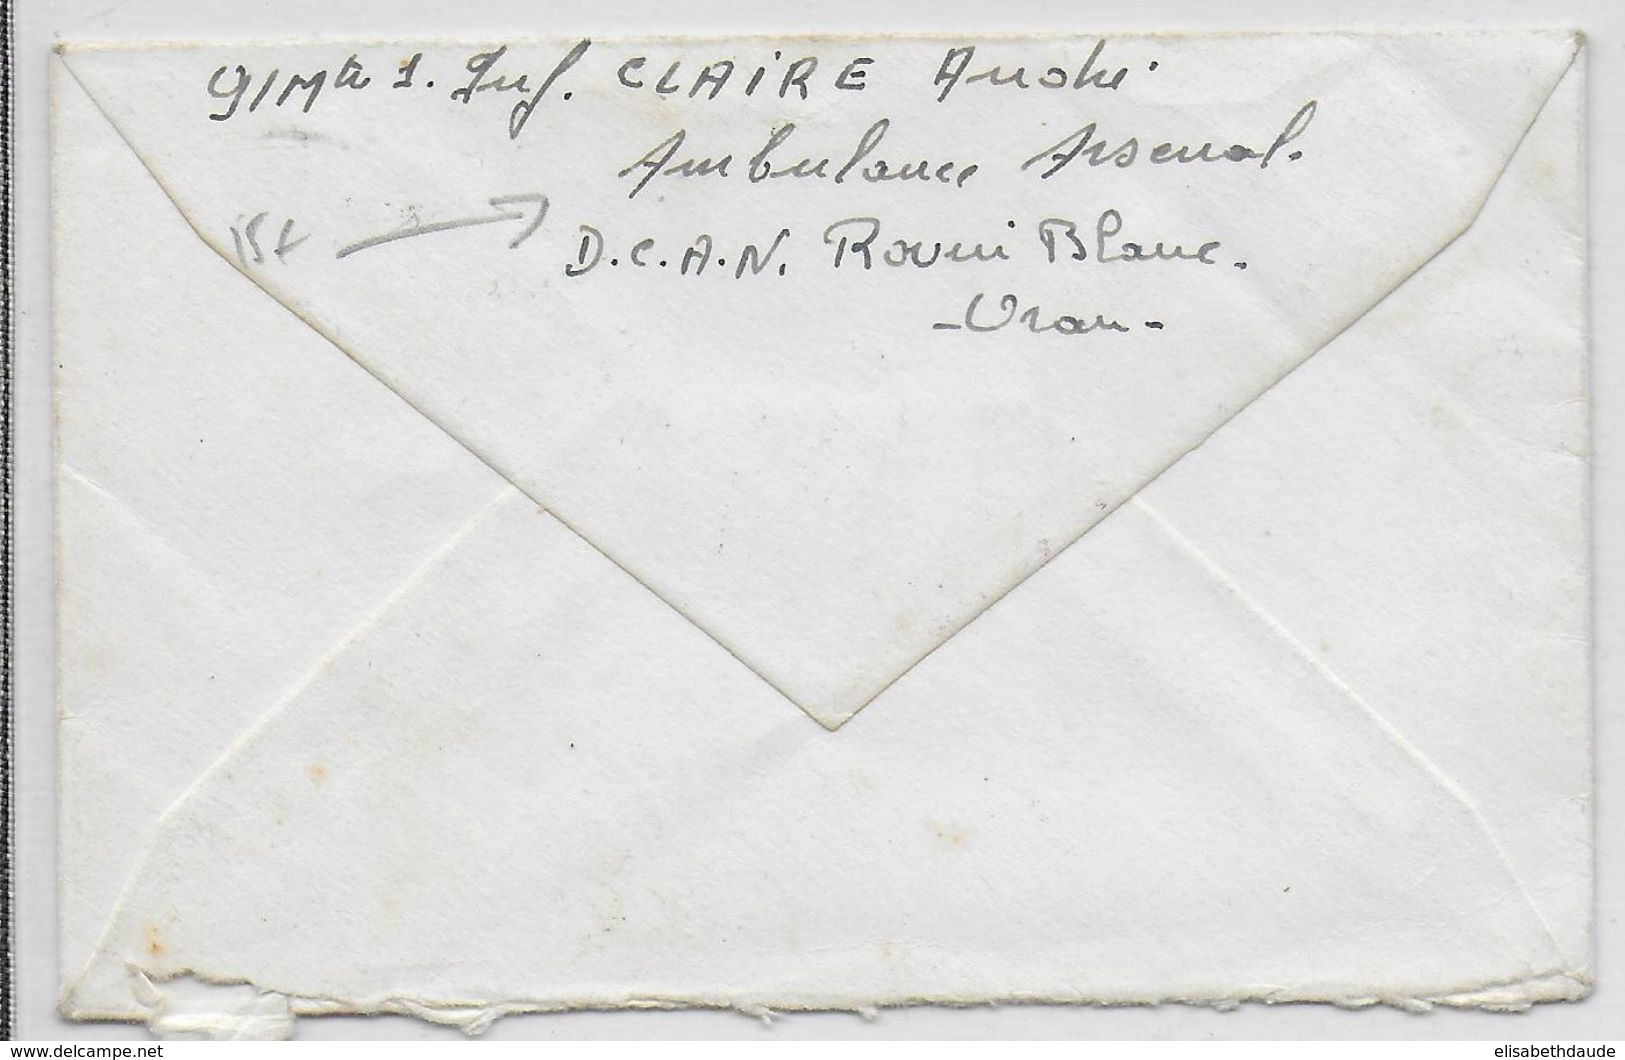 Q/Mtre 1. Inf. CLAIRE André
Ambulance Arsenal.
15x
D.C.A.N. Ravin Blanc.
- Oran -
www.delcampe.net
elisabethdaude